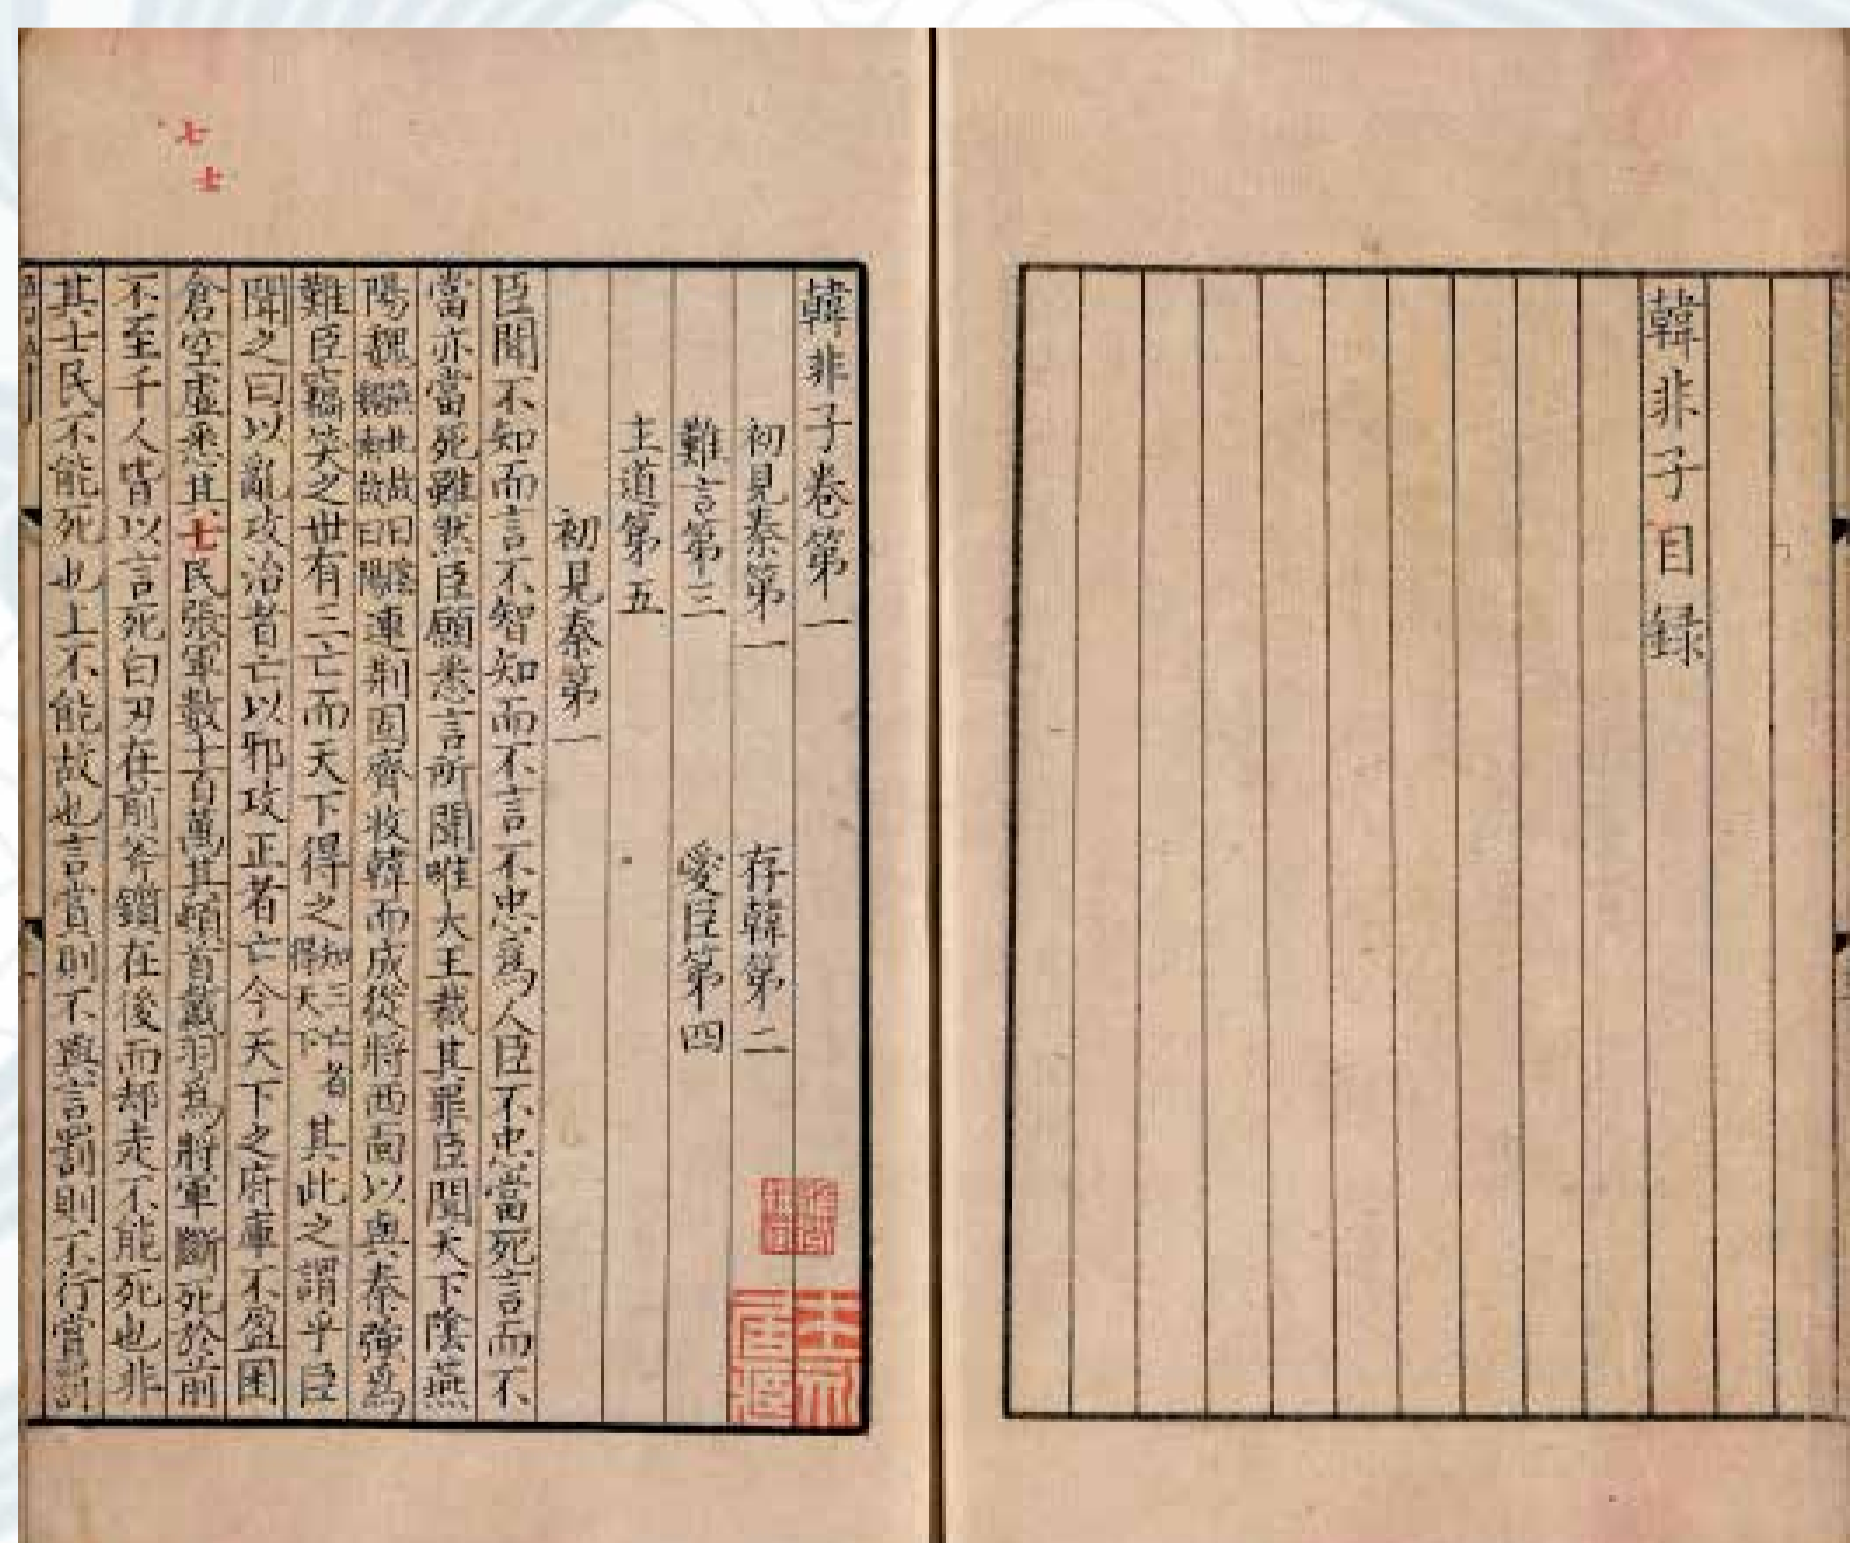 韓非子目録
韓非子卷第一
初見秦第一 存韓第二
難言第三 愛臣第四
主道第五
初見秦第一
臣聞不知而言不智知而不言不忠爲人臣不忠當死言而不
當亦當死雖然臣願悉言所聞唯大王裁其罪臣聞天下陰燕
陽魏燕北故曰陰魏南故曰陽連荆固齊收韓而成從將西面以與秦強爲
難臣竊笑之世有三亡而天下得之知三亡者得天下其此之謂乎臣
聞之曰以亂攻治者亡以邪攻正者亡今天下之府庫不盈囷
倉空虛悉其七民張軍數十百萬其頓首戴羽爲將軍斷死於前
不至千人皆以言死白刃在前斧鑕在後而却走不能死也非
其士民不能死也上不能故也言賞則不與言罰則不行賞罰
七
士